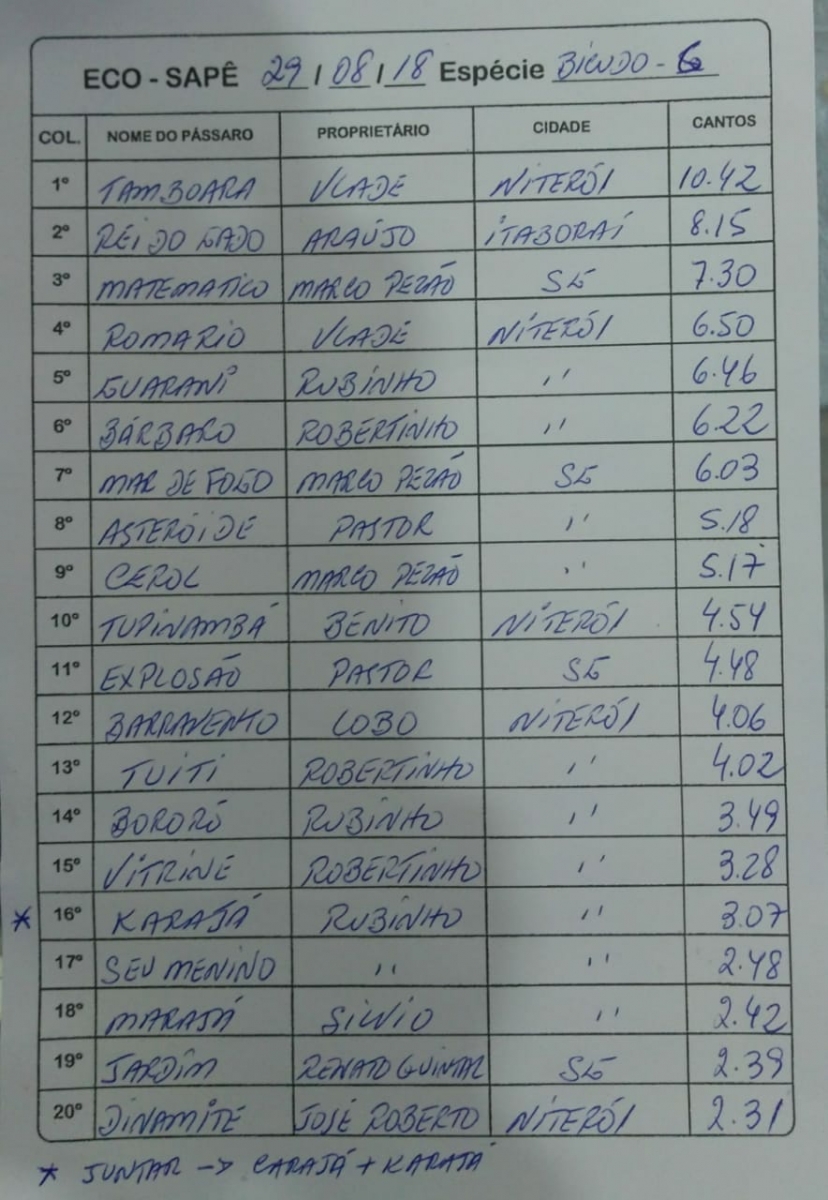 ECO - SAPÊ 29 / 08 / 18 Espécie BICUDO - G
COL. NOME DO PÁSSARO PROPRIETÁRIO CIDADE CANTOS
1º TAMBOARA VLADE NITERÓI 10.42
2º REI DO GADO ARAÚJO ITABORAÍ 8.15
3º MATEMATICO MARCO PEZÃO SG 7.30
4º ROMARIO VLADE NITERÓI 6.50
5º GUARANI RUBINHO '' 6.46
6º BÁRBARO ROBERTINHO '' 6.22
7º MAR DE FOGO MARCO PEZÃO SG 6.03
8º ASTERÓIDE PASTOR '' 5.18
9º CEROL MARCO PEZÃO '' 5.17
10º TUPINAMBÁ BENITO NITERÓI 4.54
11º EXPLOSÃO PASTOR SG 4.48
12º BARRAVENTO LOBO NITERÓI 4.06
13º TUITI ROBERTINHO '' 4.02
14º BORORÓ RUBINHO '' 3.49
15º VITRINE ROBERTINHO '' 3.28
* 16º KARAJÁ RUBINHO '' 3.07
17º SEU MENINO '' '' 2.48
18º MARAJÁ SILVIO '' 2.42
19º JARDIM RENATO QUINTAL SG 2.39
20º DINAMITE JOSÉ ROBERTO NITERÓI 2.31
* JUNTAR -> CARAJÁ + KARAJÁ